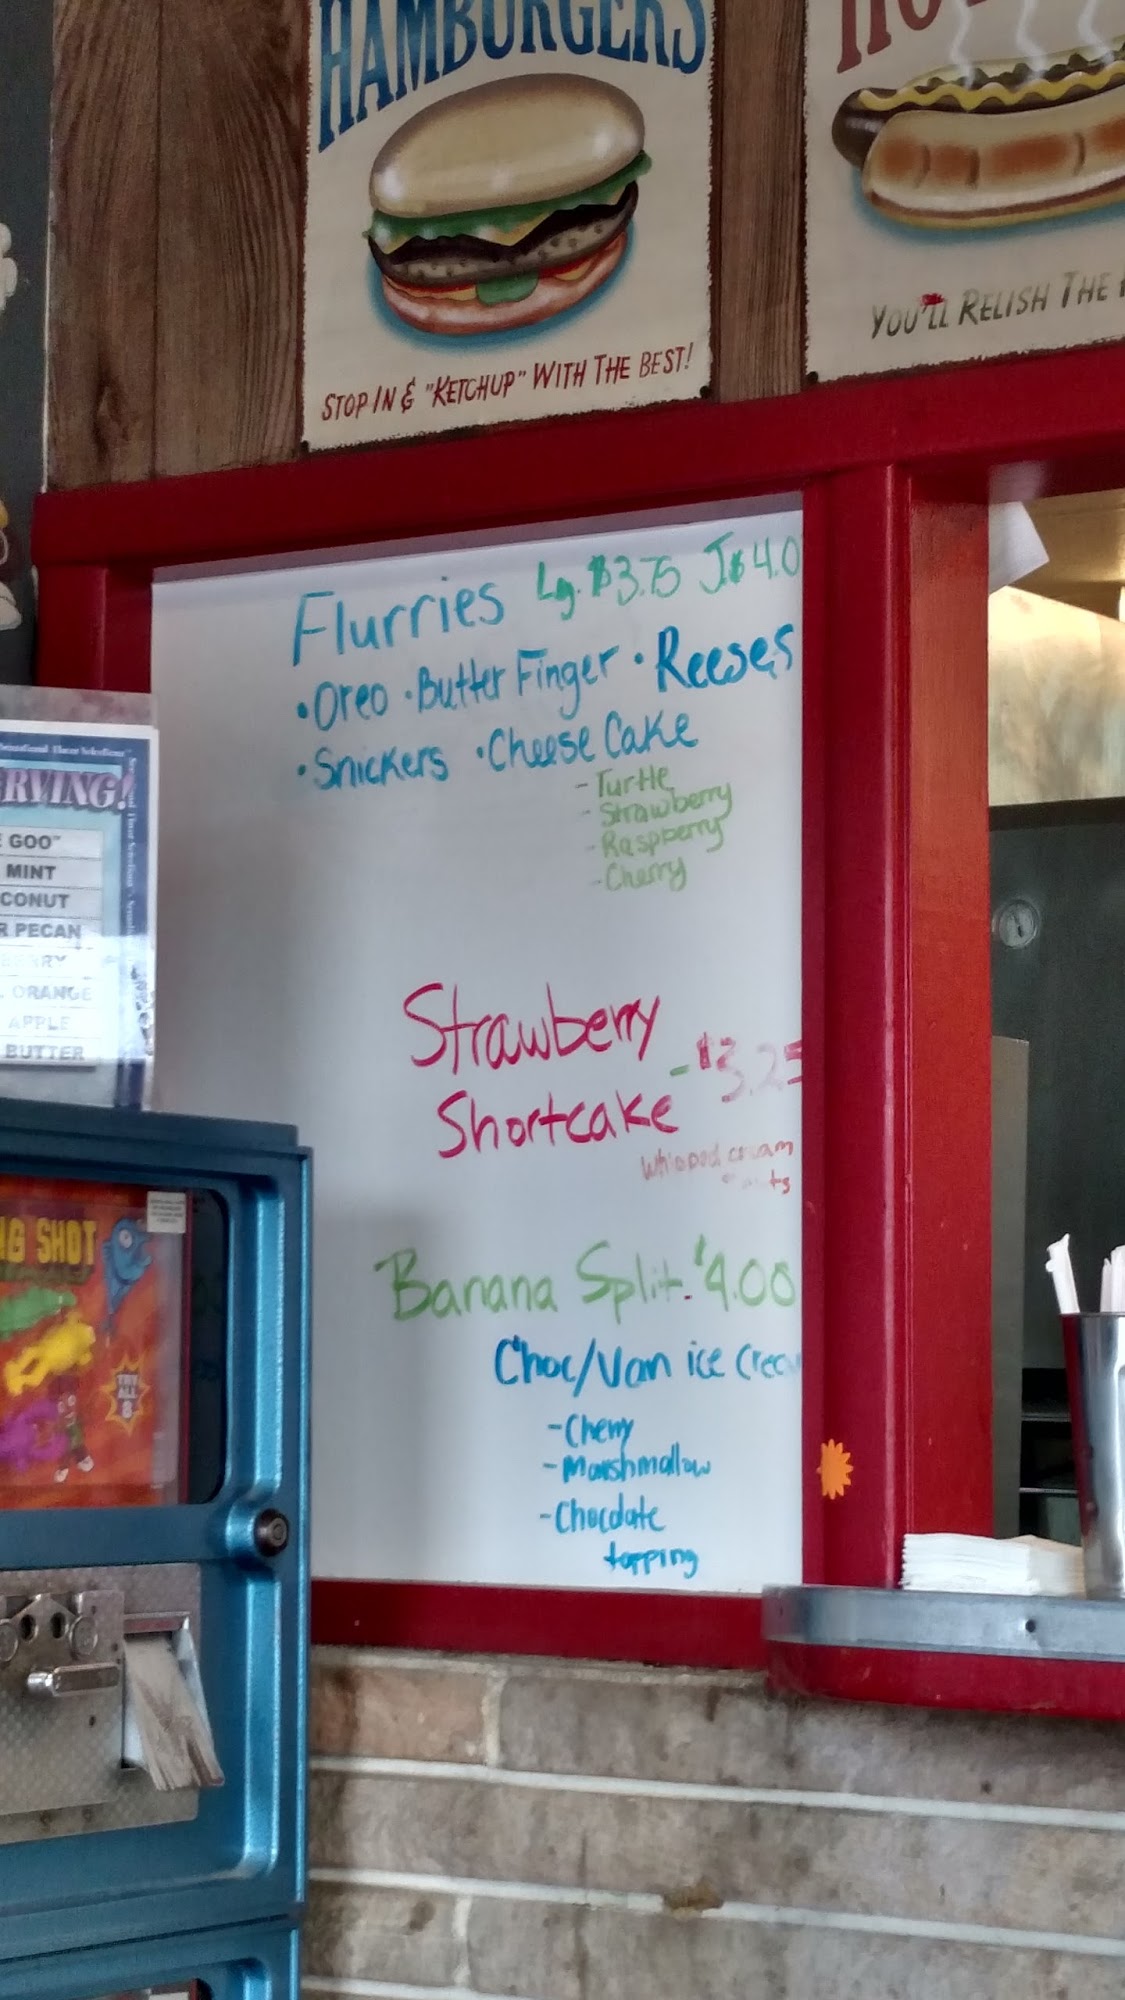 HAMBURGERS
STOP IN & "KETCHUP" WITH THE BEST!
YOU'LL RELISH THE
Flurries Lg. $3.75 J $4.0
• Oreo • Butter Finger • Reeses
• Snickers • Cheese Cake
- Turtle
- Strawberry
- Raspberry
- Cherry
Strawberry
Shortcake - $3.25
whipped cream
Banana Split. $4.00
Choc/Van ice crea
- Cherry
- Marshmallow
- Chocolate
topping
RVING!
GOO"
MINT
CONUT
R PECAN
BERRY
ORANGE
APPLE
BUTTER
G SHOT
TRY
ALL
8